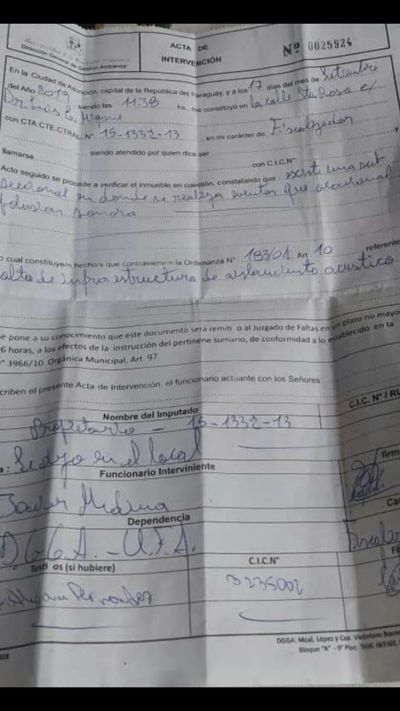 Dirección General de Gestión Ambiental
ACTA DE
INTERVENCIÓN
Nº 0025924
En la Ciudad de Asunción, capital de la República del Paraguay, y a los 17 días del mes de Setiembre
del Año 2019 siendo las 11:38 hs, me constituyo en la calle Sta Rosa e/
con CTA.CTE.CTRAL.N° 15-1332-13 en mi carácter de Fiscalizador
llamarse siendo atendido por quien dice ser con C.I.C.N°
Acto seguido se procede a verificar el inmueble en cuestión, constatando que existe una sub
seccional en donde se realiza eventos que ocasiona
sonora
o cual constituyen hechos que contravienen la Ordenanza N° art 10 referente
alta de infraestructura de aislamiento acustico
se pone a su conocimiento que este documento será remiti o al Juzgado de Faltas en un plazo no mayo
6 horas, a los efectos de la instrucción del pertinene sumario, de conformidad a lo establecido en la
N° 3966/10 Orgánica Municipal, Art. 97
criben el presente Acta de Intervención, el funcionario actuante con los Señores
Nombre del Imputado
C.I.C. N° / RU
Propietario - 15-1332-13
Se dejo en el local
Funcionario Interviniente
firm
Javier Medina
Dependencia
Ca
D.G.G.A. - U.F.A.
Test os (si hubiere)
C.I.C.N°
3235002
DGGA: Mcal. López y Cap.
Bloque "A" - 9° Piso.